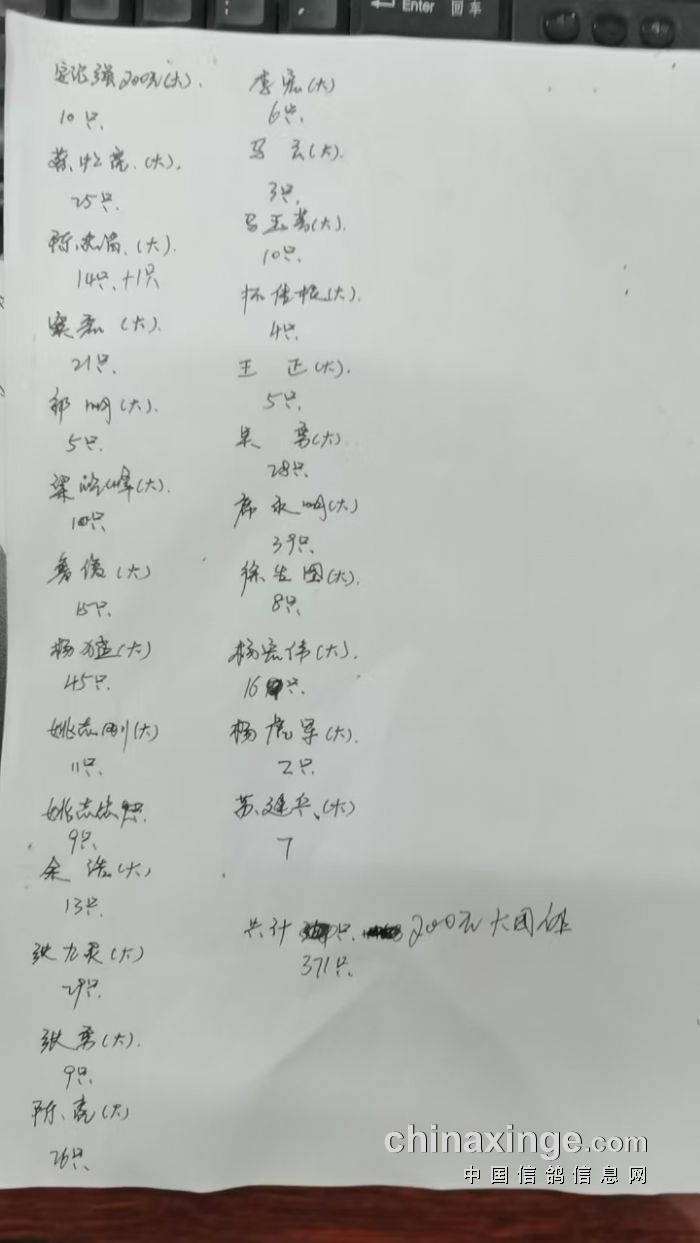 Enter 回车
强200元(大).
10只.
蔡虎.(大).
25只.
陈满.(大).
14只.+1只
窦磊(大).
21只.
祁明(大).
5只.
梁峰(大).
10只
鲁俊(大)
15只.
杨猛(大)
45只.
姚志刚(大)
11只.
姚志
9只.
余浩(大)
13只.
张九灵(大)
29只.
张勇(大).
9只.
陈虎(大)
26只.
李宏(大)
6只.
马云(大).
3只.
马玉芳(大).
10只.
怀佳根(大).
4只.
王正(大).
5只.
吴勇(大).
28只.
席永明(大)
39只.
徐生国(大).
8只.
杨宏伟(大).
16只.
杨虎军(大).
2只.
苏建兵.(大)
7
共计 200元大团体
371只.
chinaxinge.com
中国信鸽信息网